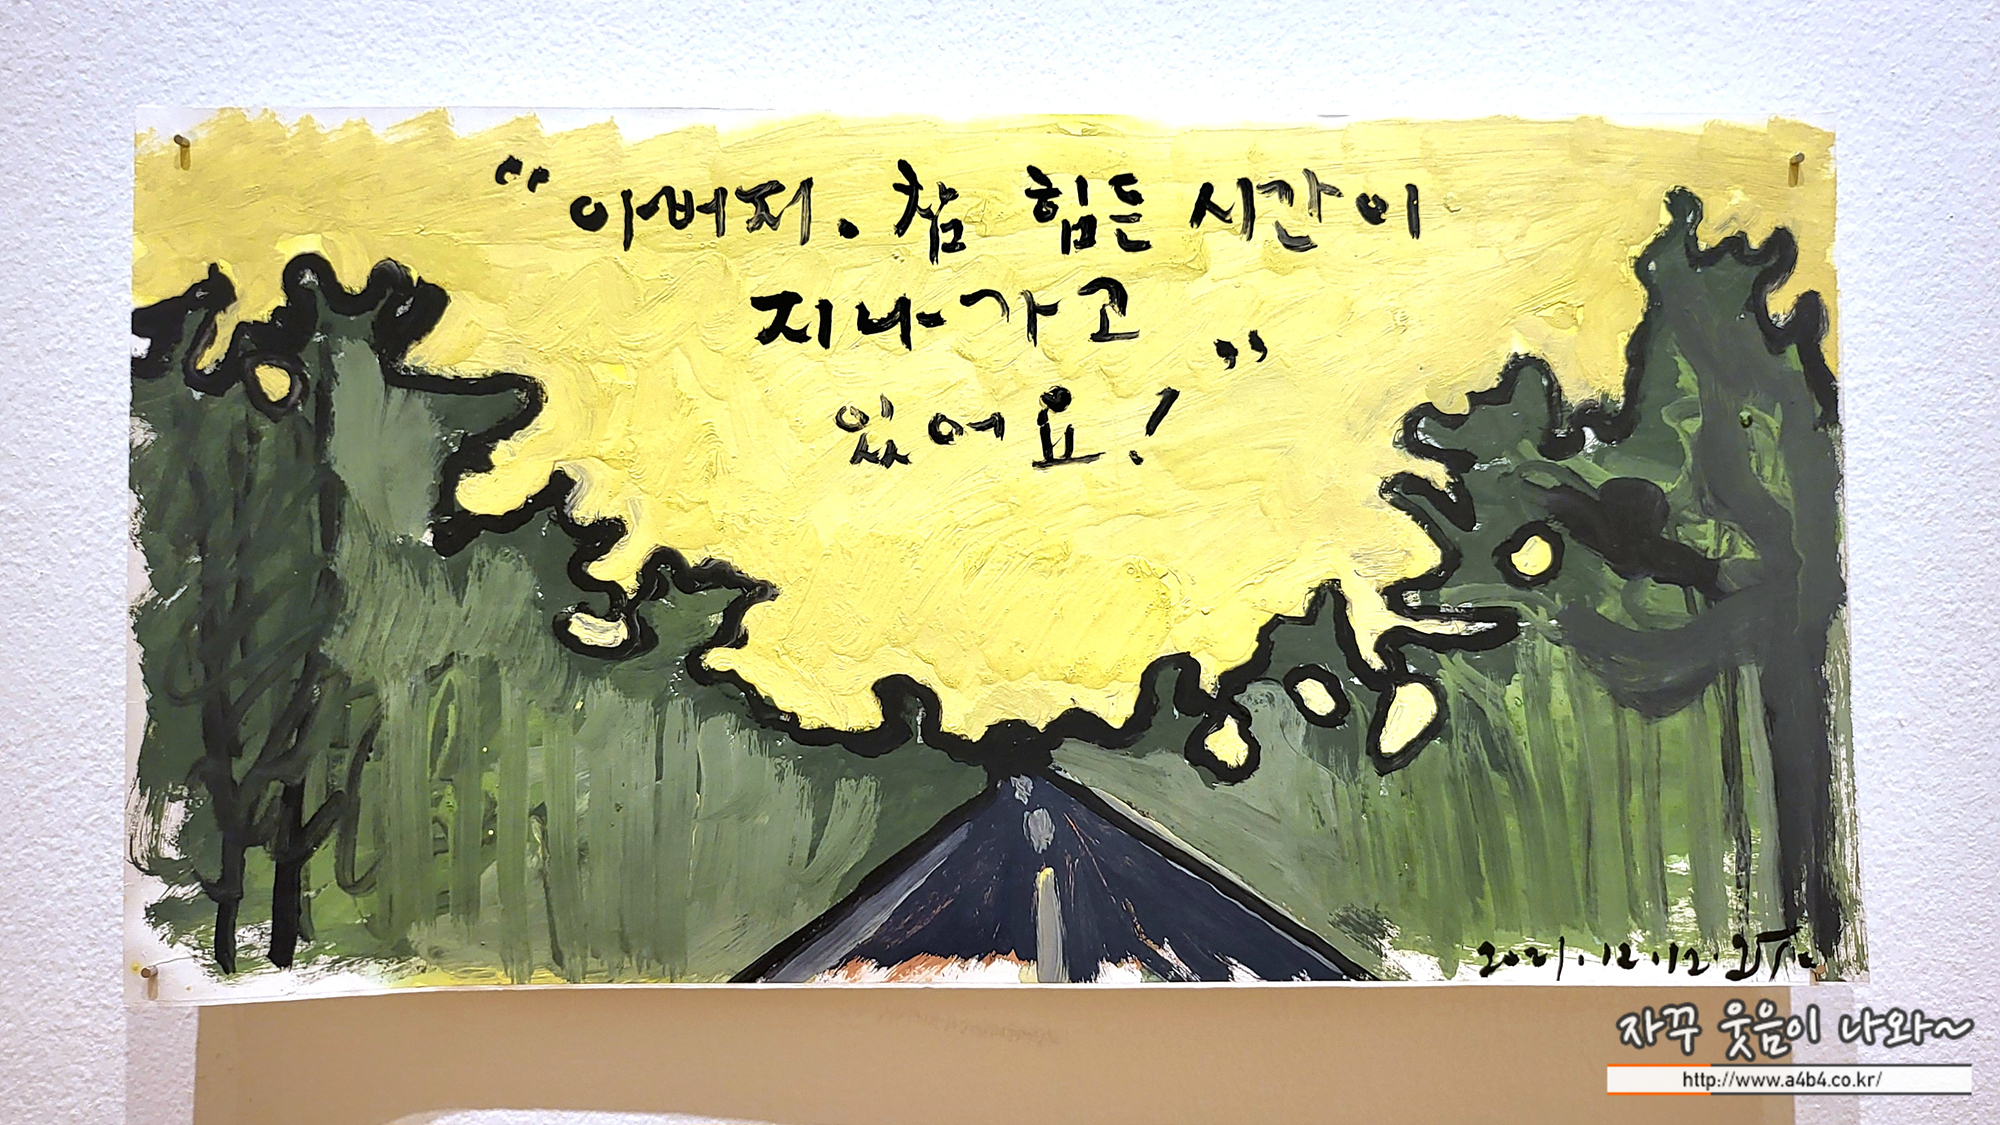 “아버지. 참 힘든 시간이
지나가고 ”
있어요!
2021.12.12.
자꾸 웃음이 나와~
http://www.a4b4.co.kr/